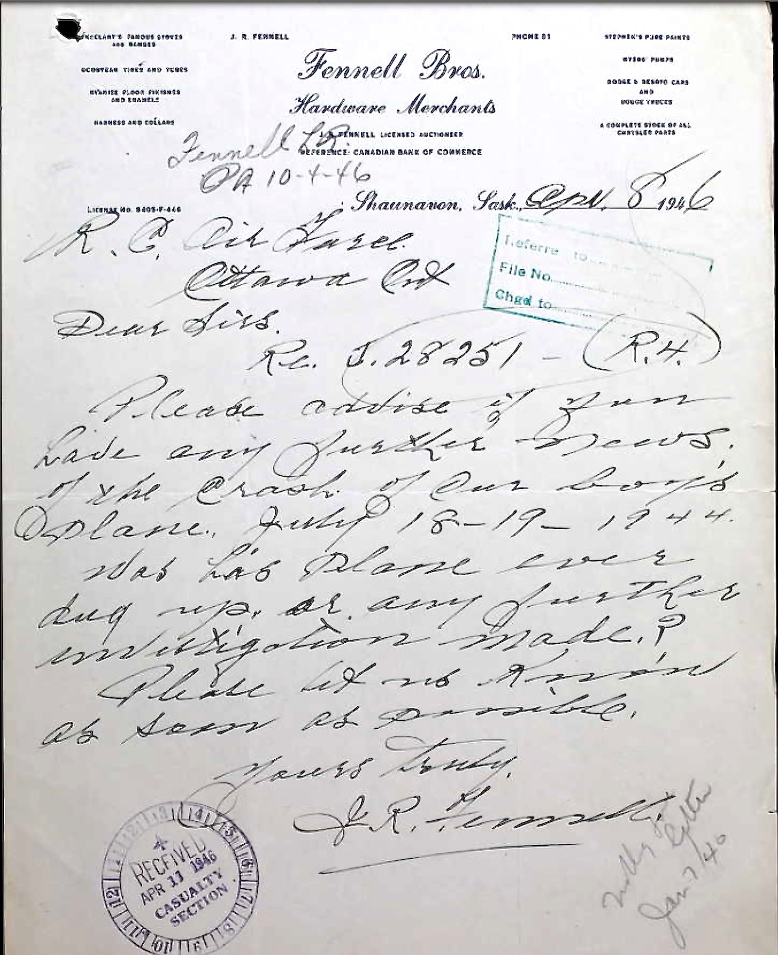 McCLARY'S FAMOUS STOVES
AND RANGES
GOODYEAR TIRES AND TUBES
FLOOR FINISHES
AND ENAMELS
HARNESS AND COLLARS
J. R. FENNELL
PHONE 81
STEPHEN'S PURE PAINTS
PUMPS
DODGE & DESOTO CARS
AND
DODGE TRUCKS
A COMPLETE STOCK OF ALL
CHRYSLER PARTS
Fennell Bros.
Hardware Merchants
FENNELL LICENSED AUCTIONEER
REFERENCE: CANADIAN BANK OF COMMERCE
Fennell L.R.
PA 10-4-46
LICENSE No.
Shaunavon, Sask., Apr. 8 1946
R. C. Air Force.
Ottawa Ont
Referre to
File No.
Chgd to
Dear Sirs.
Re. J.28251 - (R.H.)
Please advise if you
have any further news.
of the crash of our boys
plane, July 18-19-1944.
Was his plane ever
dug up, or any further
investigation made.?
Please let us know
as soon as possible.
Yours Truly.
J.R. Fennell.
RECEIVED
APR 11 1946
CASUALTY
SECTION
letter
Jan 7/46